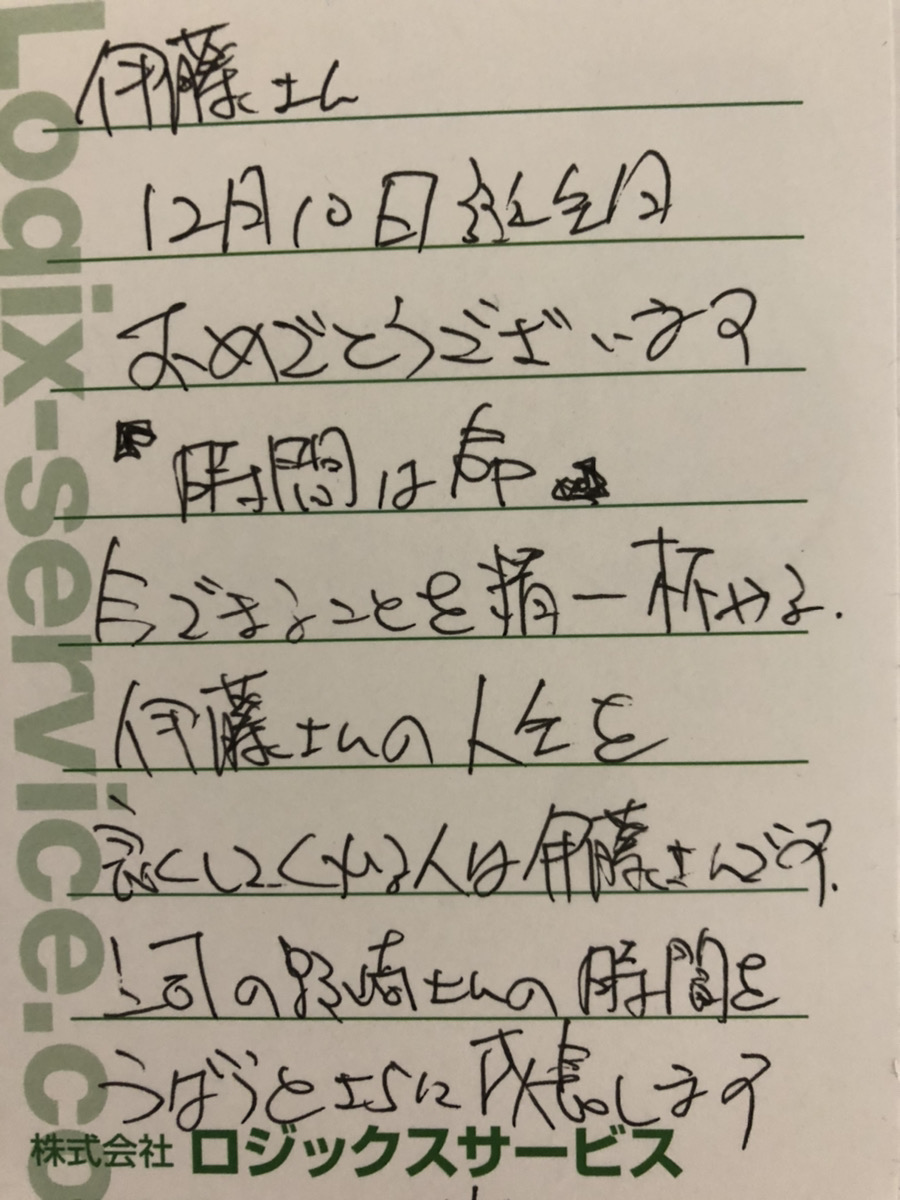 伊藤さん
12月10日誕生日
おめでとうございます
『時間は命』
全できることを精一杯やる.
伊藤さんの人生を
良くしてくれる人は伊藤さんです.
上司の野崎さんの時間を
うばうとさらに成長します
株式会社 ロジックスサービス
Logix-service.co